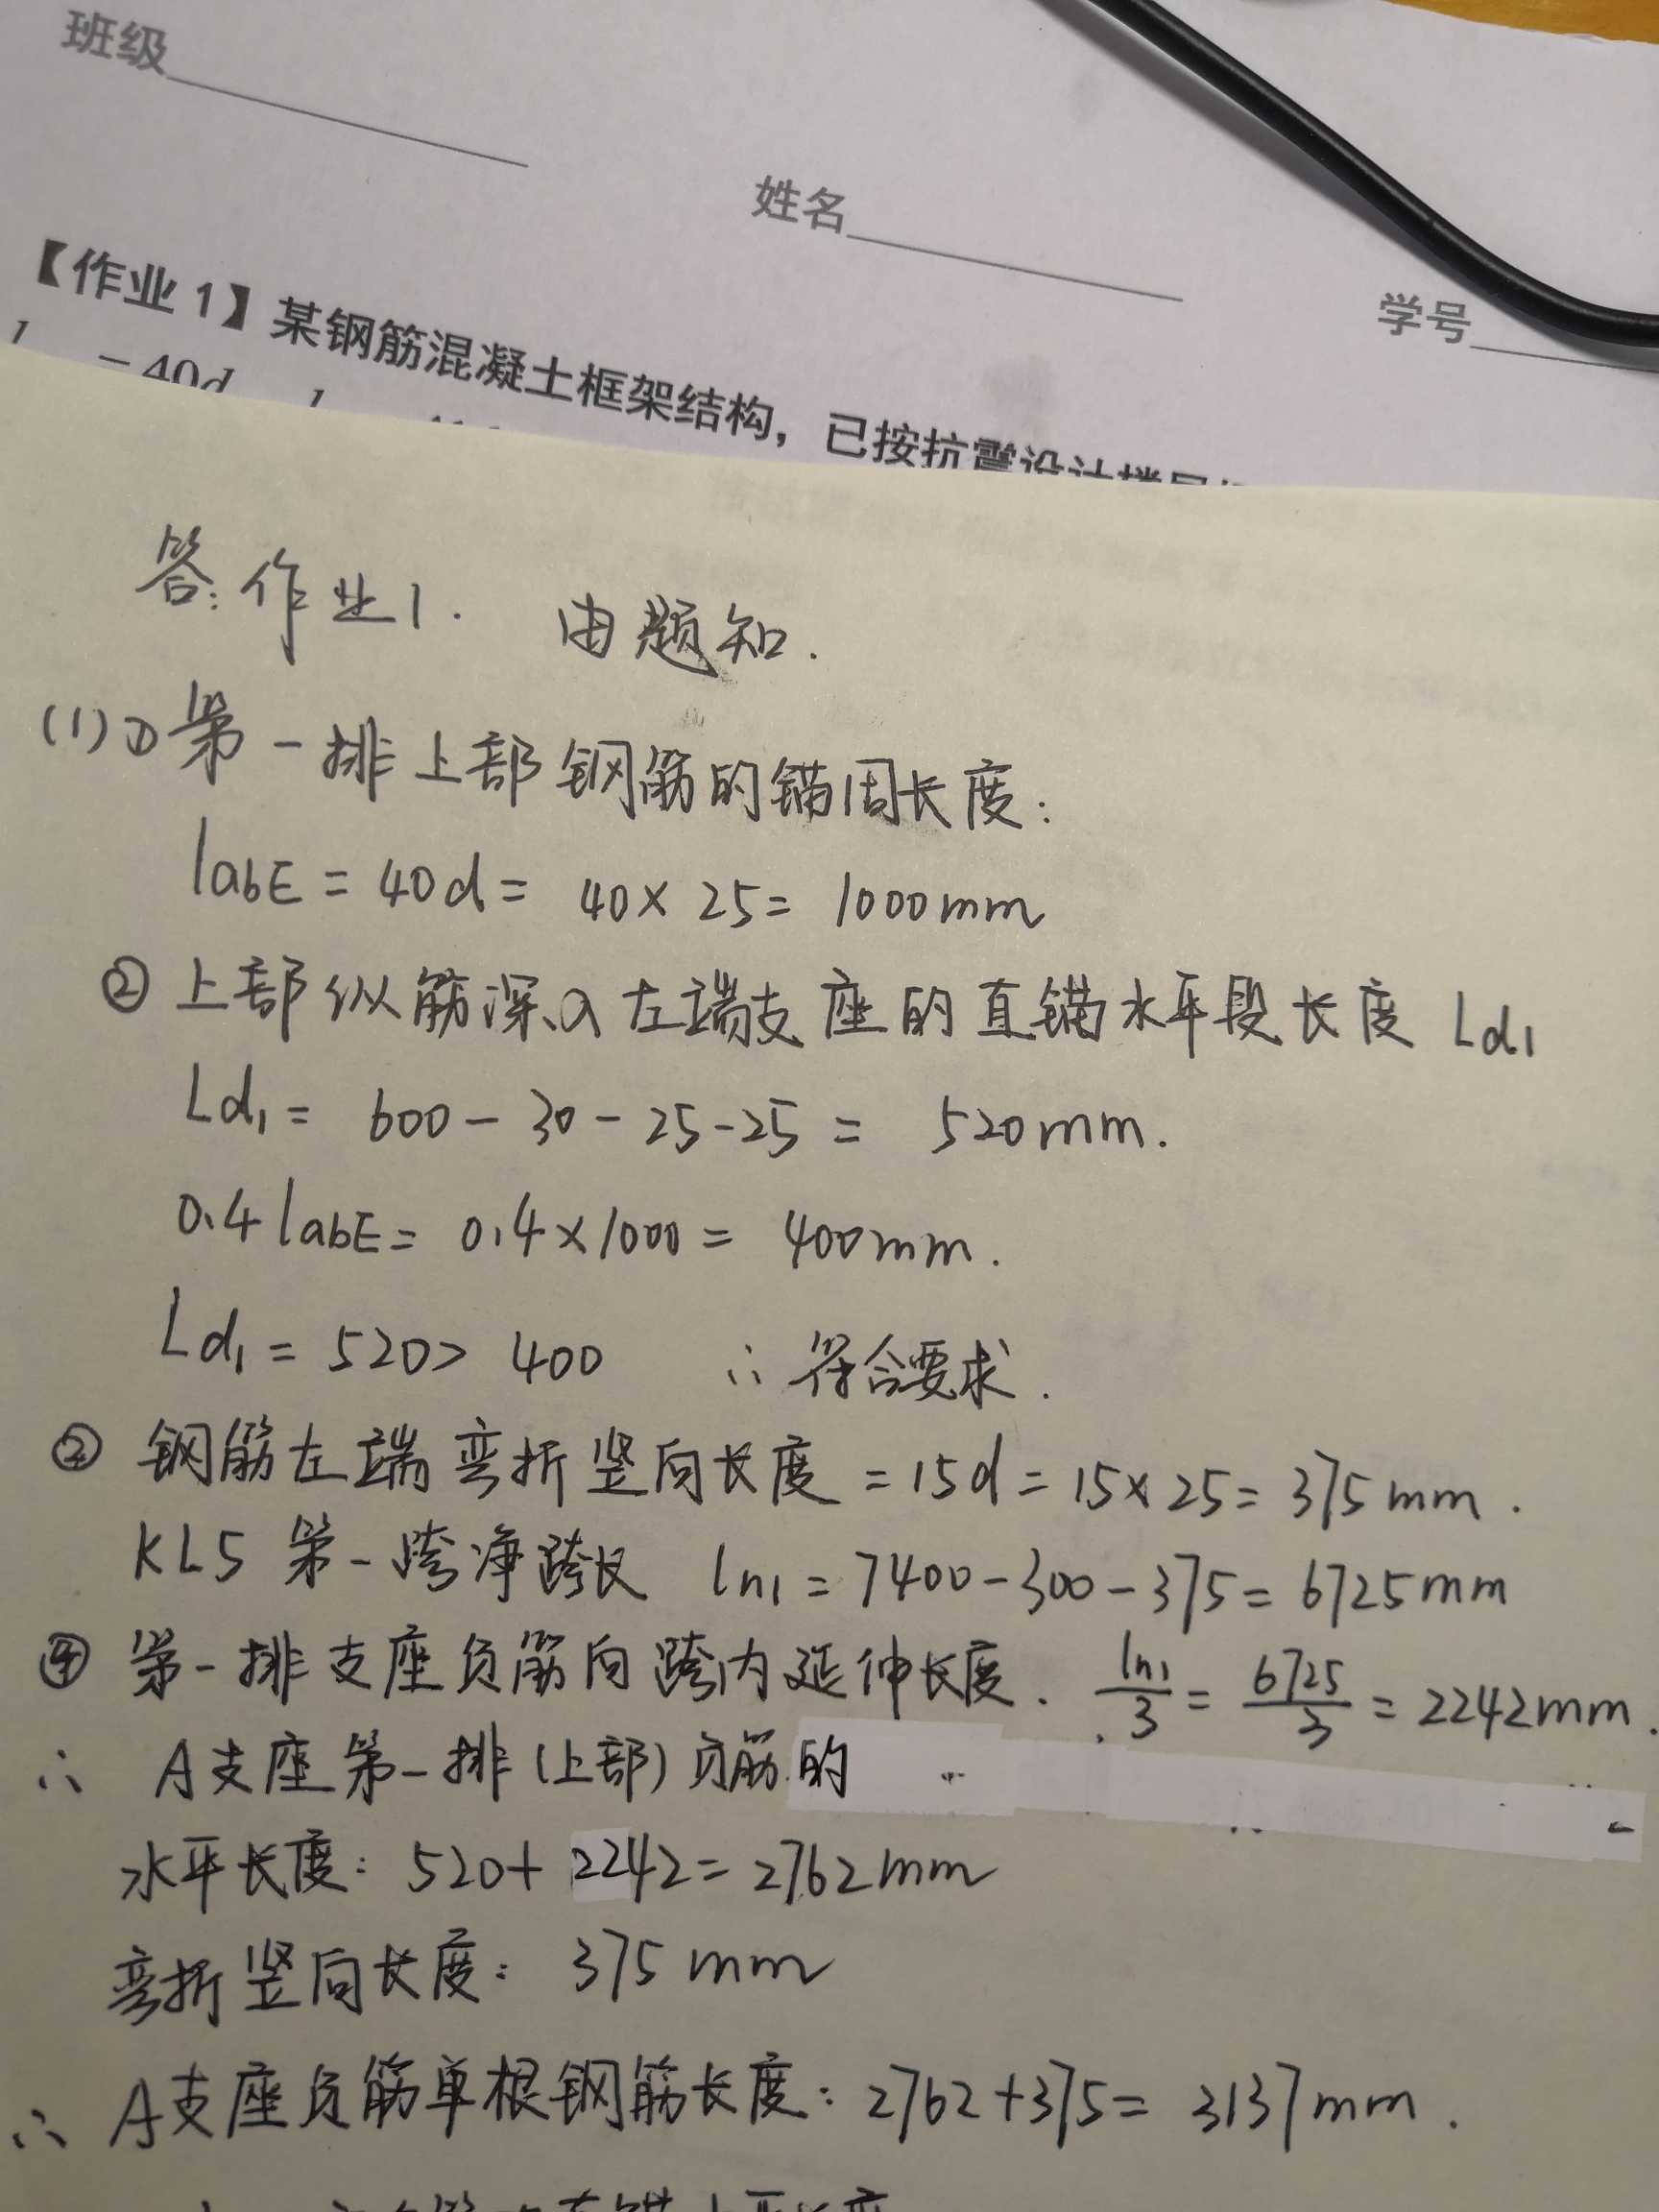 班级
姓名
学号
【作业1】某钢筋混凝土框架结构,已按抗震设计
=40d
答:作业1. 由题知.
(1)①第一排上部钢筋的锚固长度:
labE = 40d = 40×25 = 1000mm
② 上部纵筋深入左端支座的直锚水平段长度 Ld1
Ld1 = 600-30-25-25 = 520mm.
0.4labE = 0.4×1000 = 400mm.
Ld1 = 520> 400 ∴ 符合要求.
② 钢筋左端弯折竖向长度 =15d = 15×25 = 375mm.
KL5 第一跨净跨长 ln1 = 7400-300-375 = 6725mm
④ 第一排支座负筋向跨内延伸长度. ln1/3 = 6725/3 = 2242mm.
∴ A支座第一排(上部)负筋的
水平长度: 520+2242=2762mm
弯折竖向长度: 375mm
∴ A支座负筋单根钢筋长度: 2762+375= 3137mm.